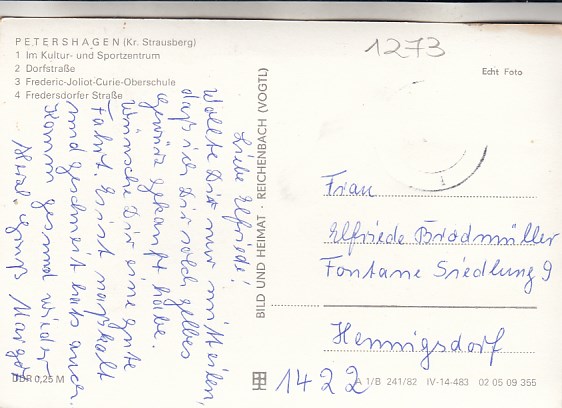 PETERSHAGEN (Kr. Strausberg)
1 Im Kultur- und Sportzentrum
2 Dorfstraße
3 Frederic-Joliot-Curie-Oberschule
4 Fredersdorfer Straße
Liebe Elfriede!
Wollte Dir nur mitteilen,
daß ich Dir solch gelbes
gekauft habe.
Wünsche Dir eine gute
Fahrt. Es ist naß kalt
und geschneit hats auch.
Komm gesund wieder
Gruß Margot
DDR 0,25 M
BILD UND HEIMAT · REICHENBACH (VOGTL)
1273
Echt Foto
Frau
Elfriede Brodmüller
Fontane Siedlung 9
Hennigsdorf
1422
A 1/B 241/82 IV-14-483 02 05 09 355